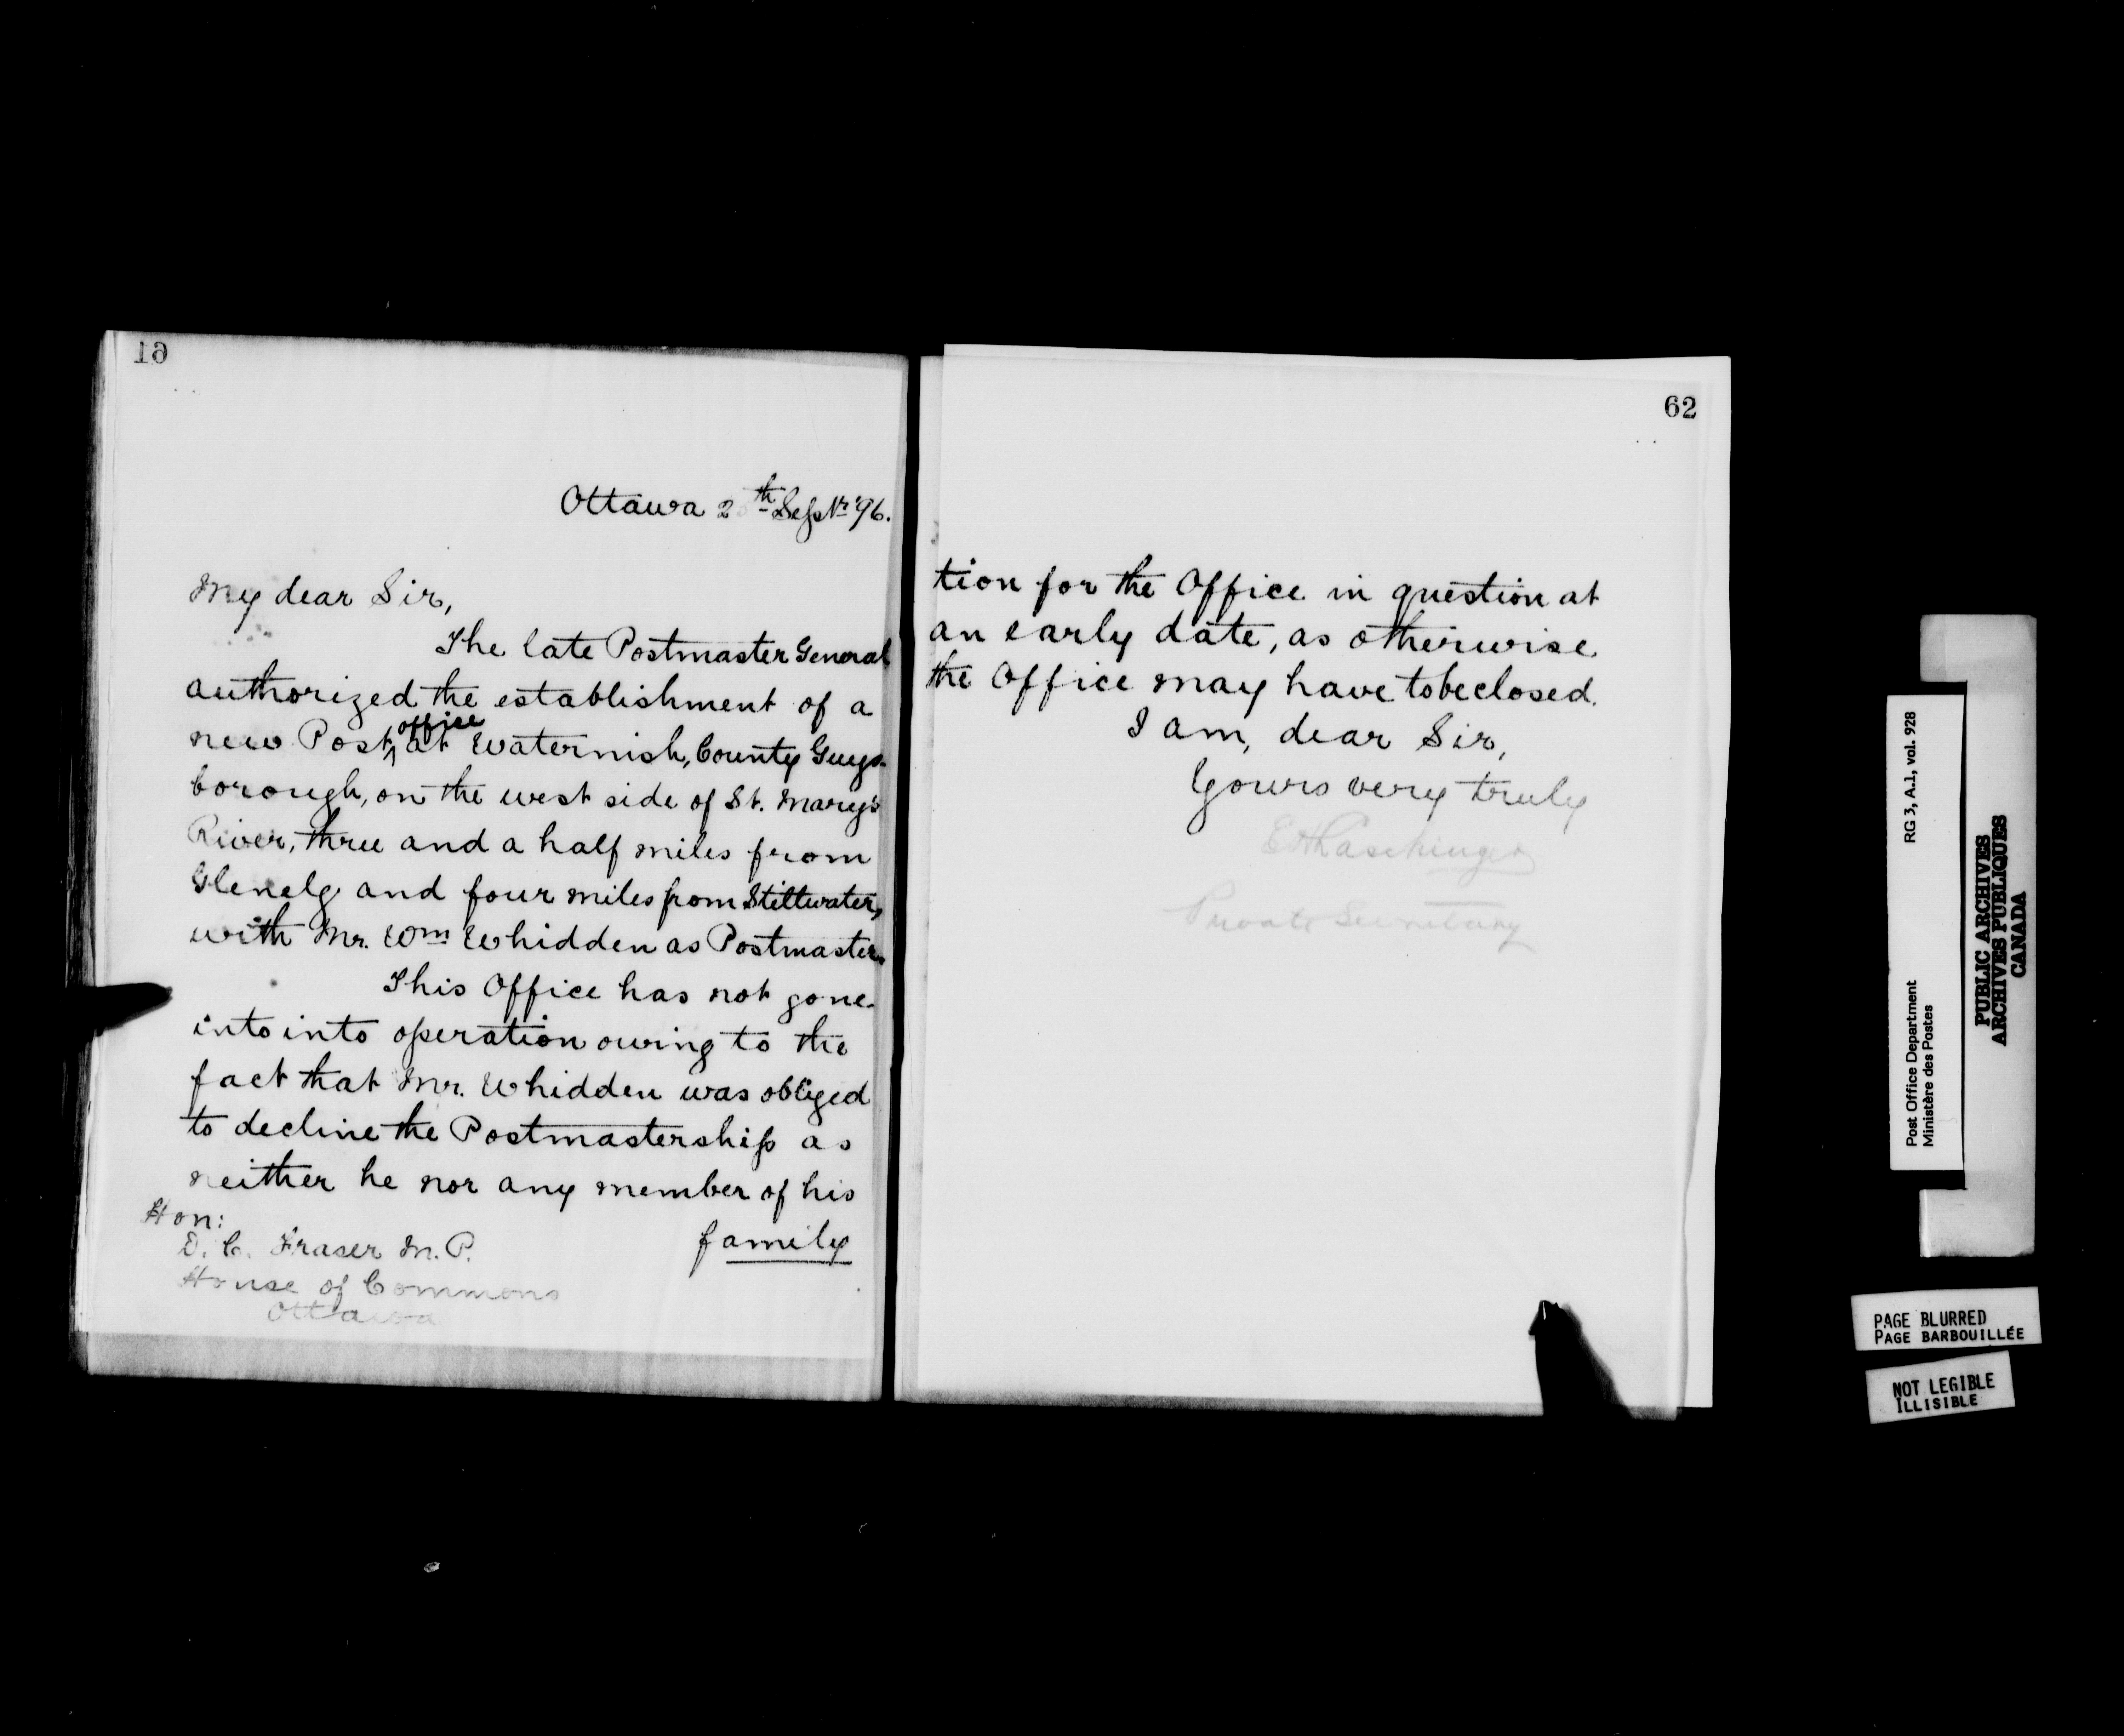 61
Ottawa 2 th Septr '96.
My dear Sir,
The late Postmaster General
authorized the establishment of a
new Post office at Waternish, County Guys-
borough, on the west side of St. Mary's
River, three and a half miles from
Glenelg and four miles from Stillwater,
with Mr. Wm Whidden as Postmaster.
This Office has not gone
into into operation owing to the
fact that Mr. Whidden was obliged
to decline the Postmastership as
neither he nor any member of his
family
Hon:
D. C. Fraser M. P.
House of Commons
Ottawa
62
tion for the Office in question at
an early date, as otherwise
the Office may have to be closed.
I am, dear Sir,
Yours very truly
Private Secretary
RG 3, A.1, vol. 928
Post Office Department
Ministère des Postes
PUBLIC ARCHIVES
ARCHIVES PUBLIQUES
CANADA
PAGE BLURRED
PAGE BARBOUILLÉE
NOT LEGIBLE
ILLISIBLE